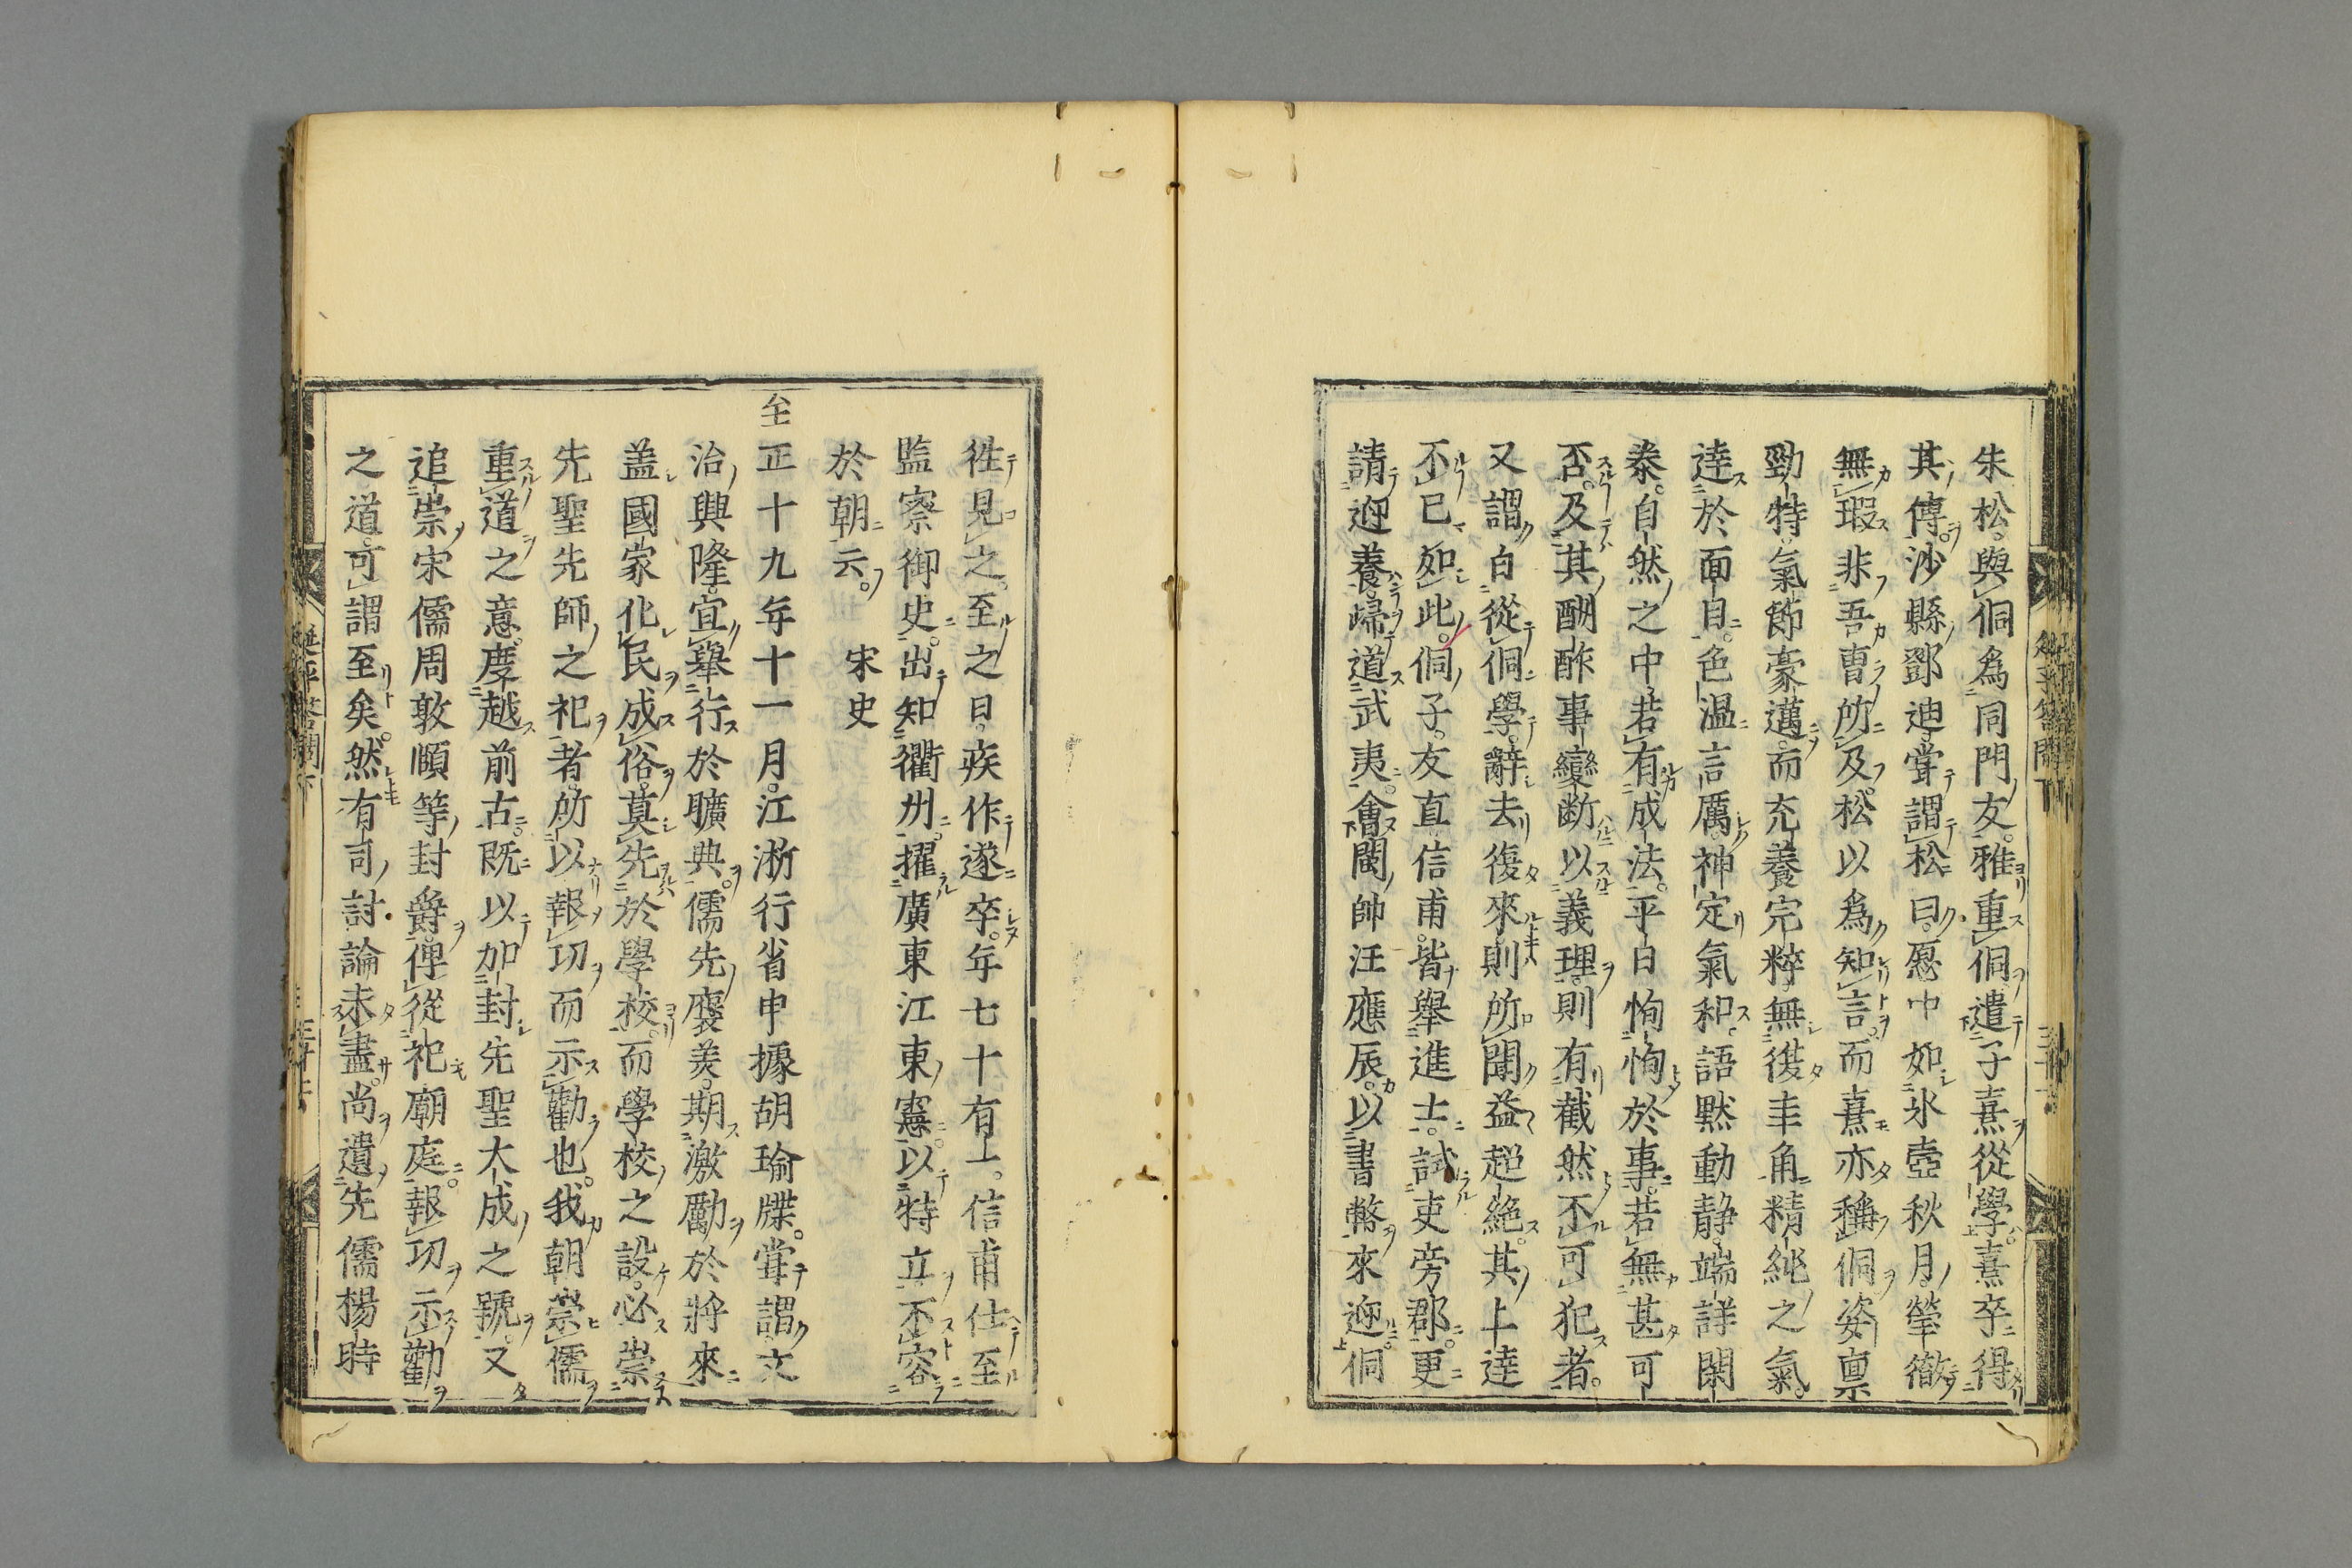 朱松。與侗爲同門友。雅重侗遣子熹從學。熹卒得
其傳。沙縣鄧迪。甞謂松曰。愿中如氷壺秋月。瑩徹
無瑕非吾曺所及。松以爲知言。而熹亦稱侗姿禀
勁特。氣節豪邁。而充養完粹。無復圭角。精純之氣。
達於面目。色温言厲。神定氣和。語黙動静。端詳閑
泰。自然之中。若有成法。平日恂恂於事。若無甚可
否。及其酬酢事變断以義理。則有截然不可犯者。
又謂自從侗學。辭去復來則所聞益超絶。其上達
不已如此。侗子。友直信甫。皆舉進士。試吏旁郡。更
請迎養。歸道武夷。會閩帥汪應辰。以書幣來迎侗
徃見之。至之日。疾作遂卒。年七十有一。信甫仕至
監察御史。出知衢州。擢廣東江東憲。以特立不容
於朝云。宋史
至正十九年十一月。江浙行省申據胡瑜牒。甞謂文
治興隆。宜舉行於曠典。儒先褒羙。期激勵於將來
盖國家化民成俗。莫先於學校。而學校之設。必崇
先聖先師之祀者。所以報功而示勸也。我朝崇儒
重道之意。度越前古。既以加封先聖大成之號。又
追崇宋儒周敦頥等封爵。俾從祀廟庭。報功示勸
之道。可謂至矣。然有司討論未盡。尚遺先儒楊時
延平答問下